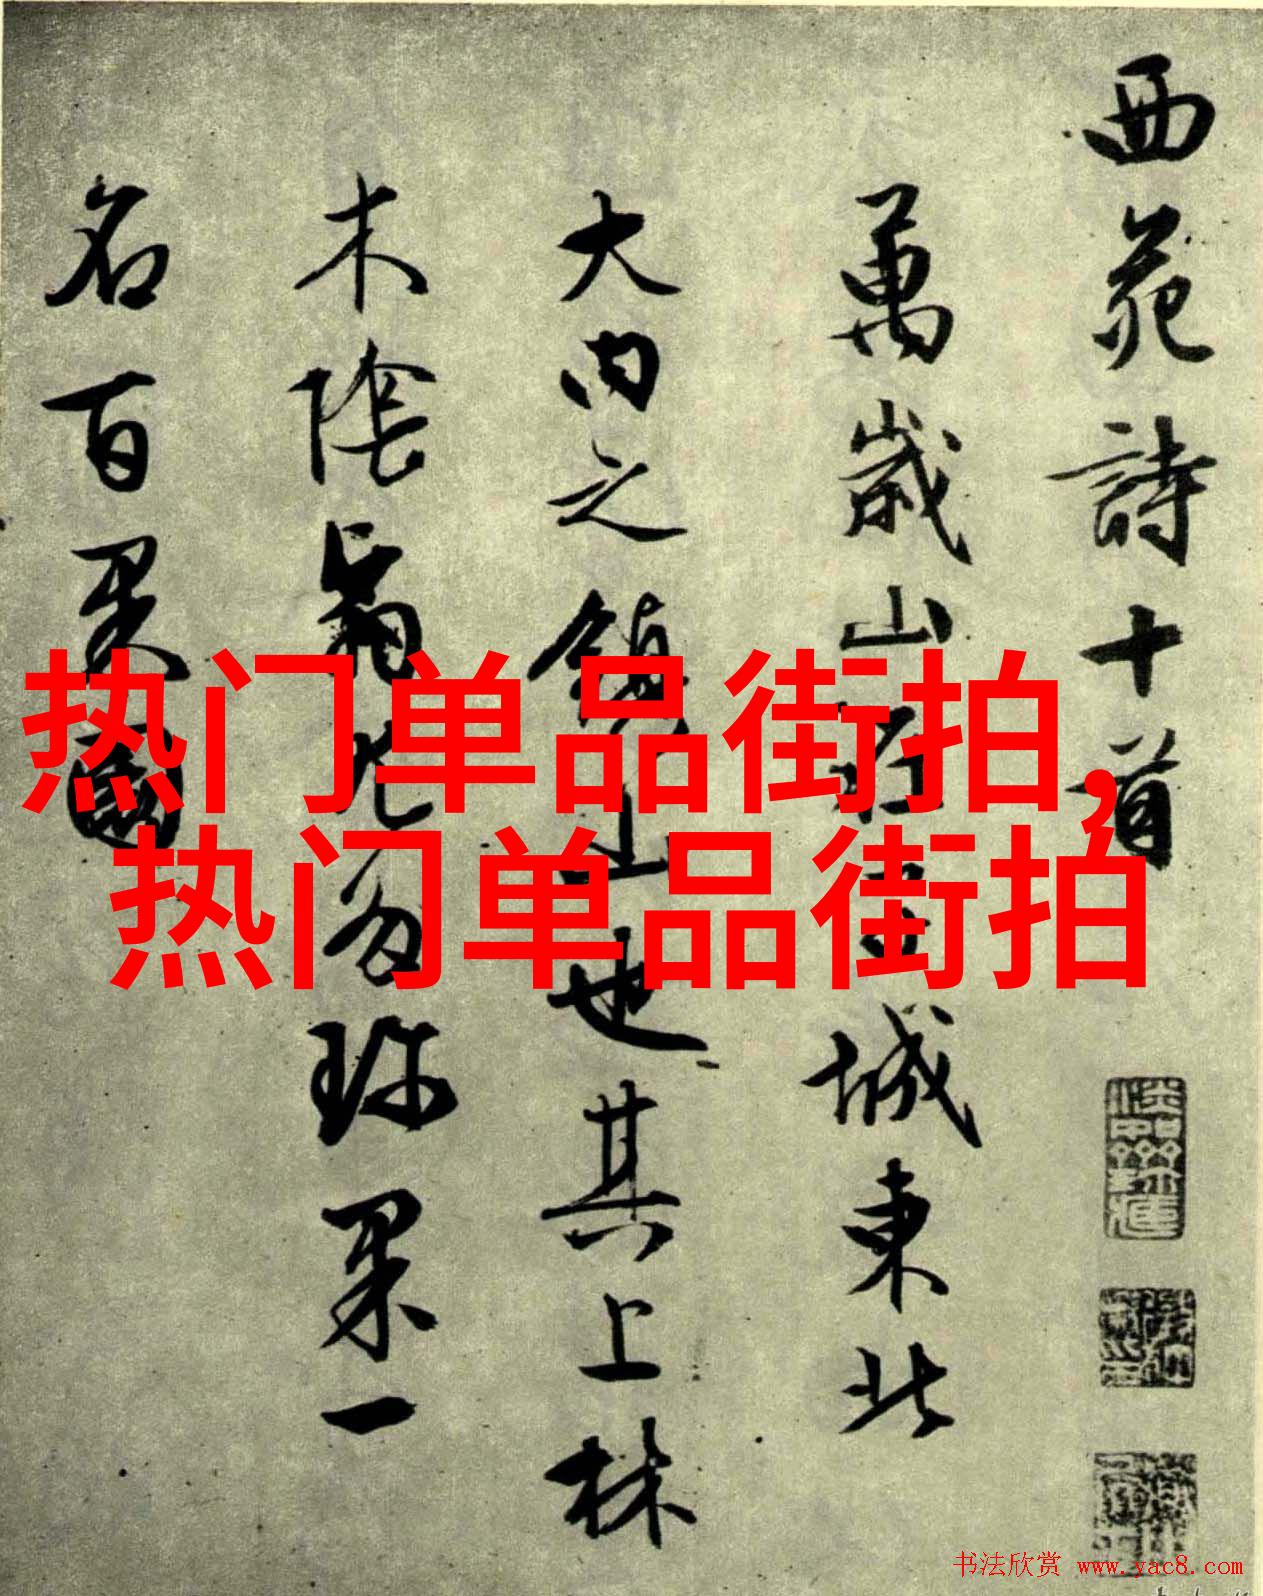 西苑詩十首
萬歲山在子城東北
大內之鎮山也其上林
木陰翳尤多珍果一
名百果園
热门单品街拍,
热门单品街拍
书法欣赏 www.yac8.com